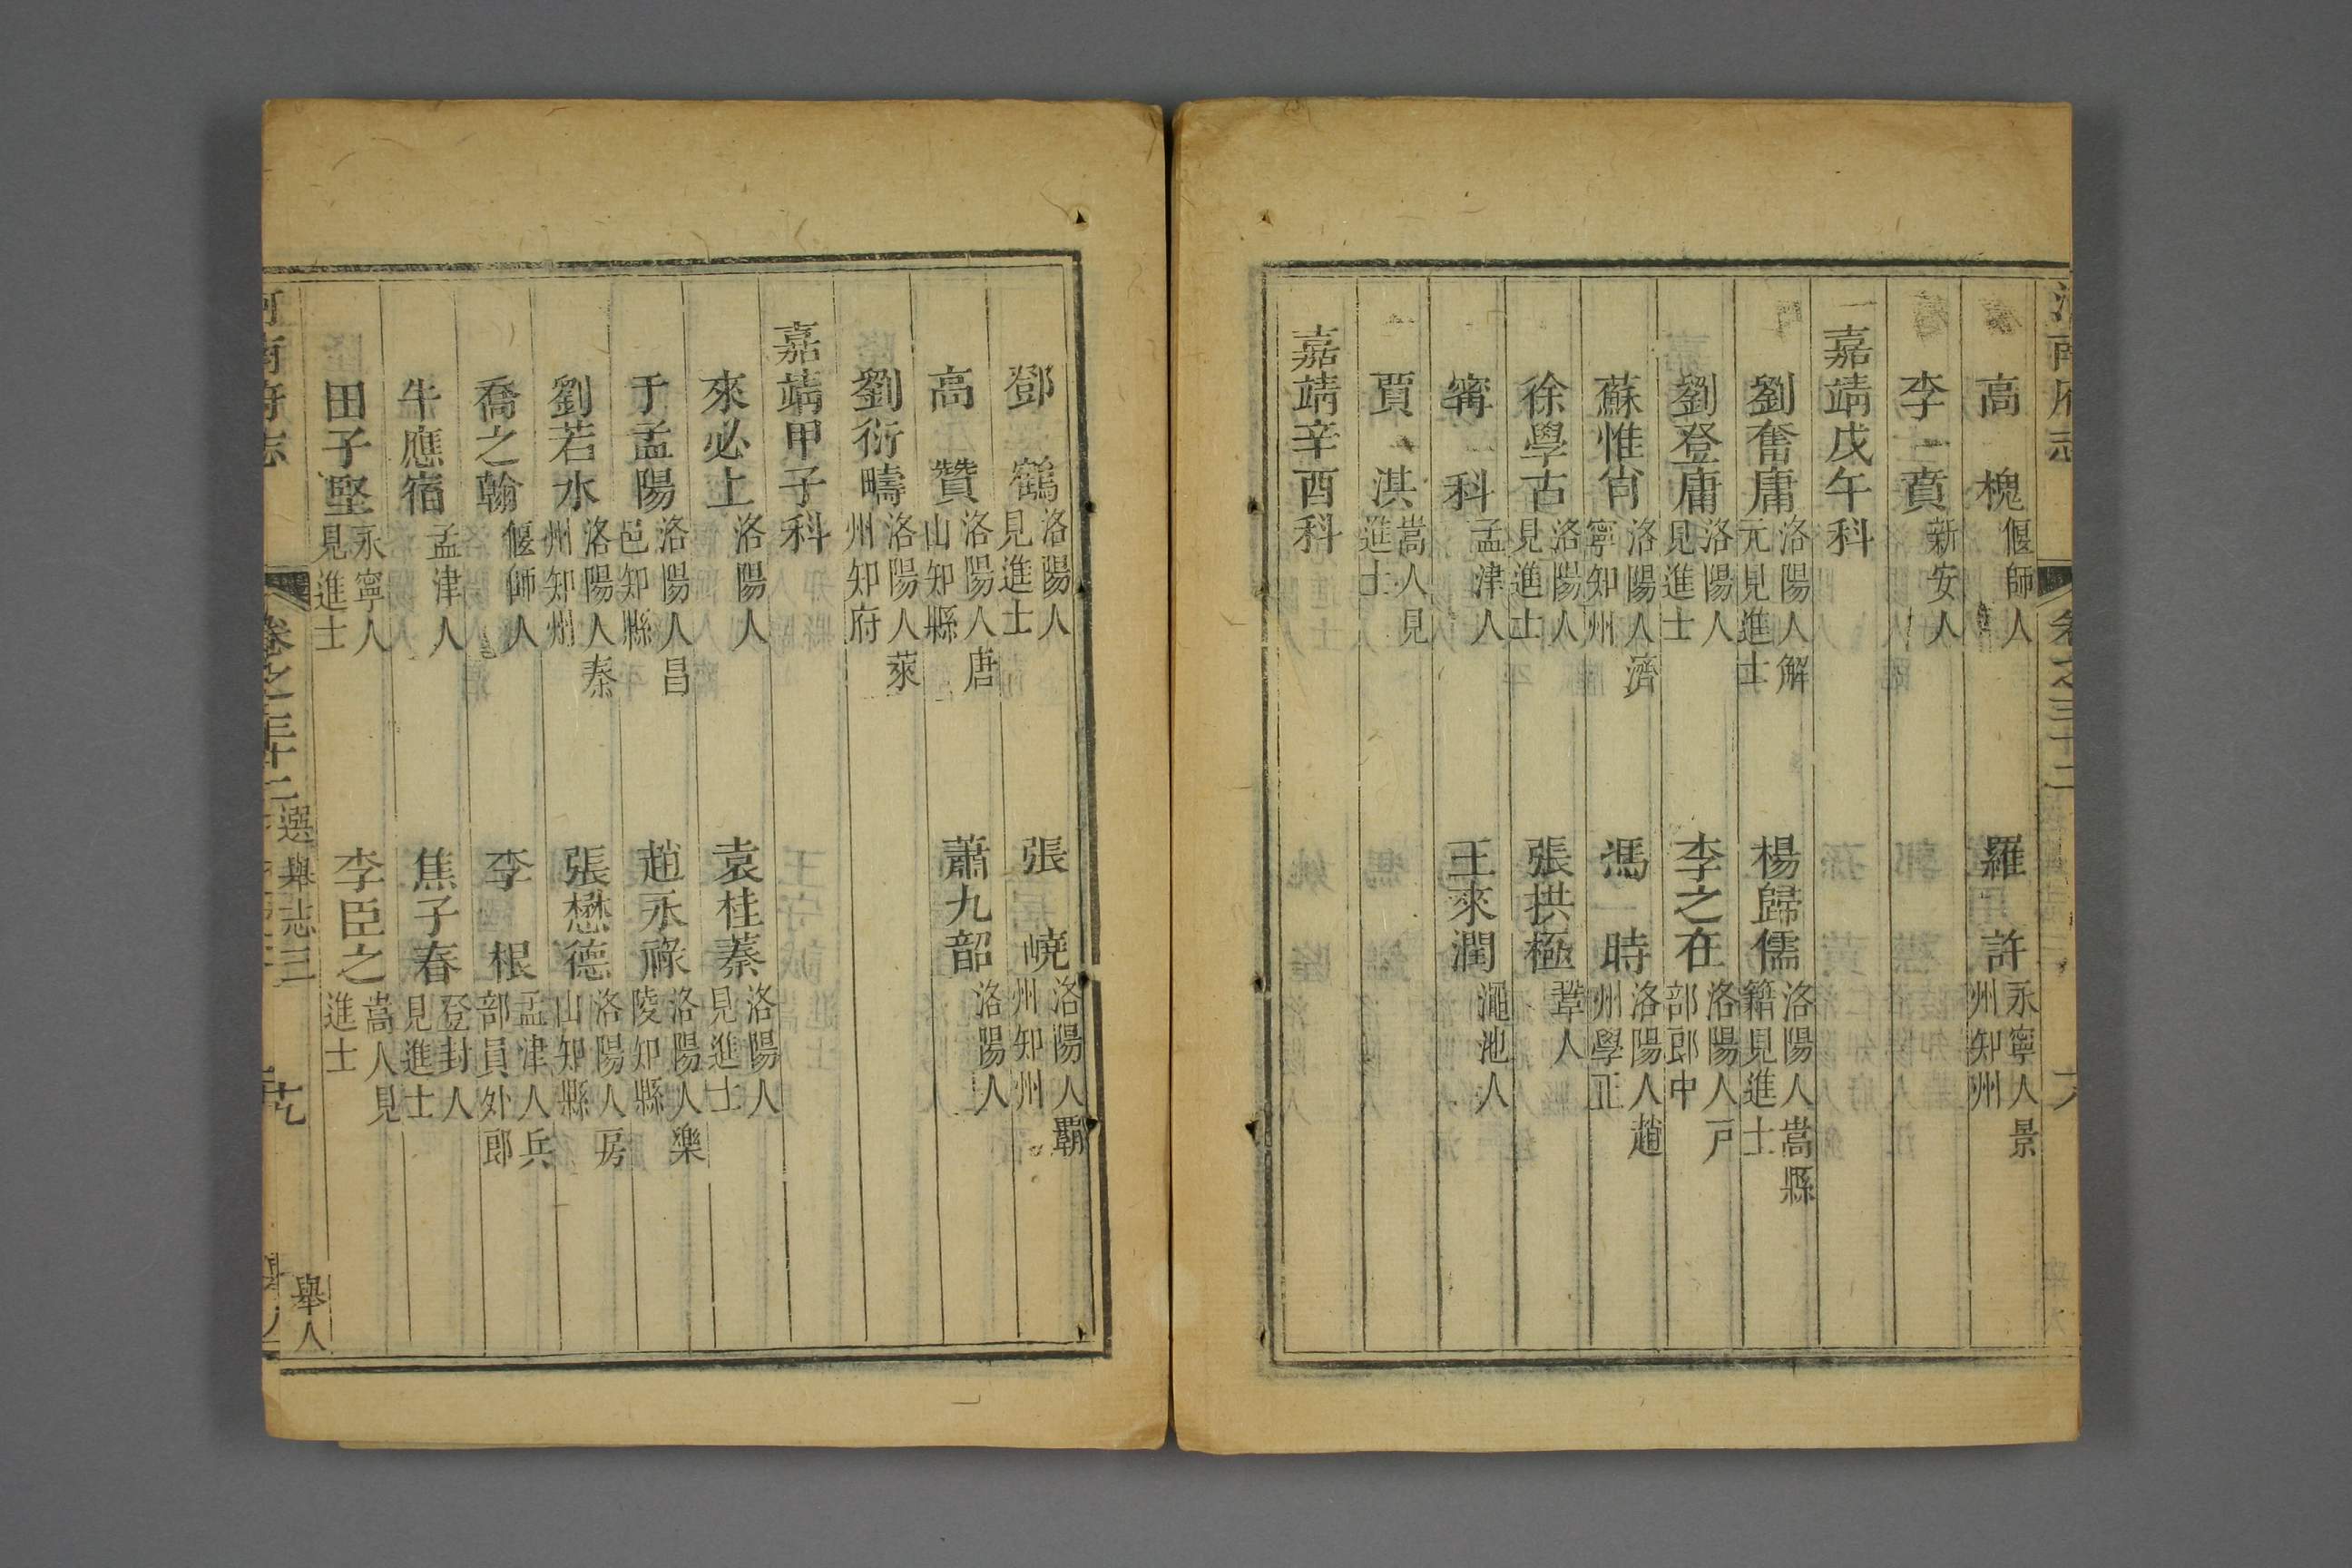 高槐偃師人
羅許永寧人景州知州
李賁新安人
嘉靖戊午科
劉奮庸洛陽人解元見進士
楊歸儒洛陽人嵩縣籍見進士
劉登庸洛陽人見進士
李之在洛陽人戸部郎中
蘇惟肖洛陽人濟寧知州
馮時洛陽人趙州學正
徐學古洛陽人見進士
張拱極鞏人
甯科孟津人
王來潤澠池人
賈淇嵩人見進士
嘉靖辛酉科
鄧鶴洛陽人見進士
張嶢洛陽人霸州知州
高贊洛陽人唐山知縣
蕭九韶洛陽人
劉衍疇洛陽人萊州知府
嘉靖甲子科
來必上洛陽人
袁桂蓁洛陽人見進士
于孟陽洛陽人昌邑知縣
趙永祿洛陽人樂陵知縣
劉若水洛陽人秦州知州
張懋德洛陽人房山知縣
喬之翰偃師人
李根孟津人兵部員外郎
牛應宿孟津人
焦子春登封人見進士
田子堅永寧人見進士
李臣之嵩人見進士
河南府志
卷之三十二
選舉志三
舉人